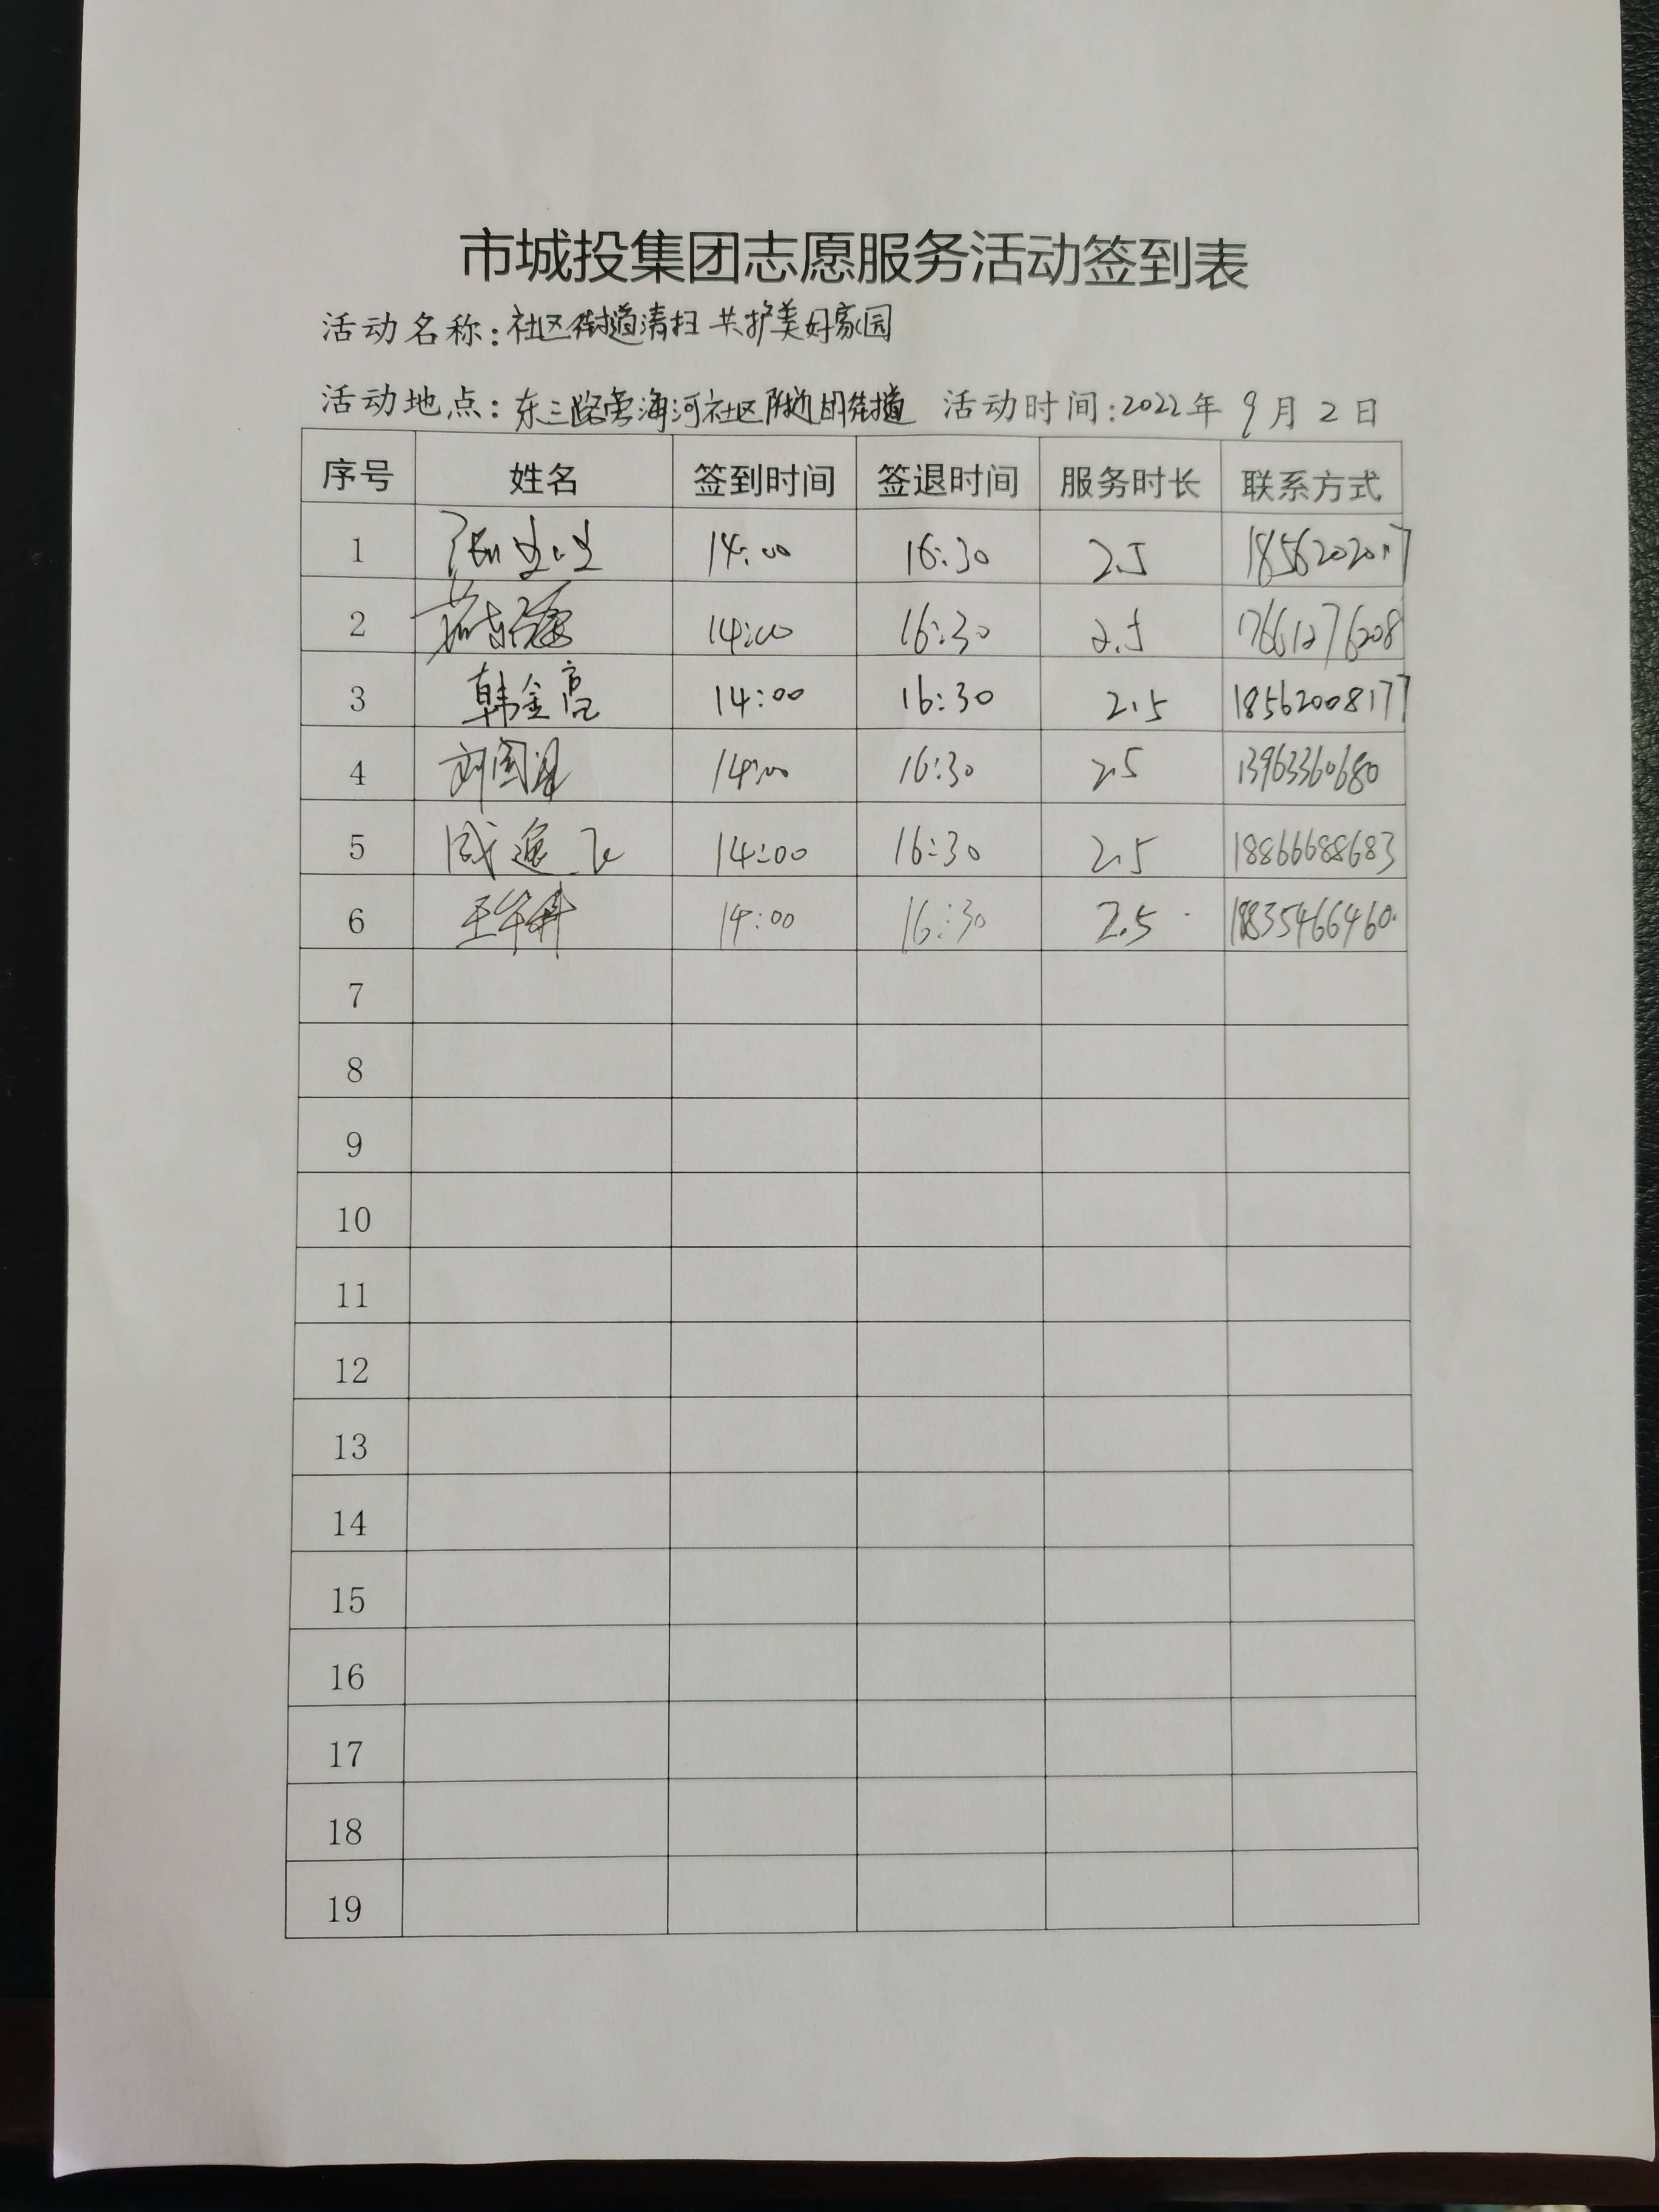 市城投集团志愿服务活动签到表
活动名称:社区街道清扫 共护美好家园
活动地点:东三路旁海河社区附近 街道 活动时间:2022年 9月 2日
序号 姓名 签到时间 签退时间 服务时长 联系方式
1 14:00 16:30 2.5
2 14:00 16:30 2.5 17661276208
3 韩金亮 14:00 16:30 2.5 18562008177
4 14:00 16:30 2.5 13963360680
5 16:30 14:00 2.5 18866688683
6 14:00 16:30 2.5 18835466460
7
8
9
10
11
12
13
14
15
16
17
18
19